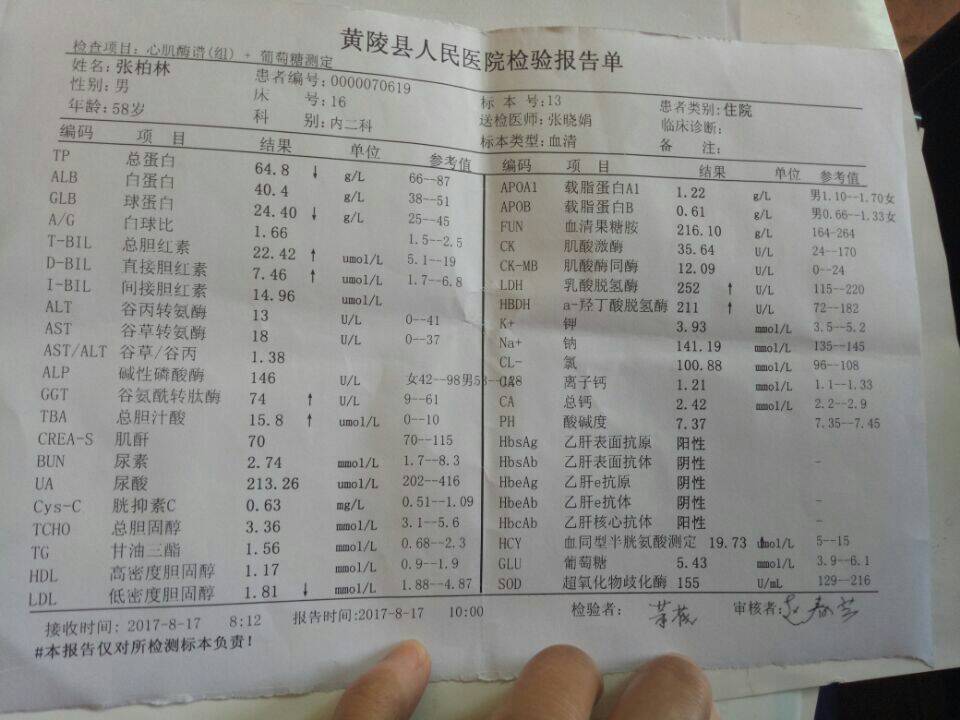 黄陵县人民医院检验报告单
检查项目: 心肌酶谱(组) + 葡萄糖测定
姓名: 张柏林 患者编号: 0000070619 标 本 号: 13 患者类别: 住院
性别: 男 床 号: 16 送检医师: 张晓娟 临床诊断:
年龄: 58岁 科 别: 内二科 标本类型: 血清 备 注:
编码 项 目 结果 单位 参考值
TP 总蛋白 64.8 ↓ g/L 66--87
ALB 白蛋白 40.4 g/L 38--51
GLB 球蛋白 24.40 ↓ g/L 25--45
A/G 白球比 1.66 1.5--2.5
T-BIL 总胆红素 22.42 ↑ umol/L 5.1--19
D-BIL 直接胆红素 7.46 ↑ umol/L 1.7--6.8
I-BIL 间接胆红素 14.96 umol/L
ALT 谷丙转氨酶 13 U/L 0--41
AST 谷草转氨酶 18 U/L 0--37
AST/ALT 谷草/谷丙 1.38
ALP 碱性磷酸酶 146 U/L 女42--98男53--128
GGT 谷氨酰转肽酶 74 ↑ U/L 9--61
TBA 总胆汁酸 15.8 ↑ umol/L 0--10
CREA-S 肌酐 70 70--115
BUN 尿素 2.74 mmol/L 1.7--8.3
UA 尿酸 213.26 umol/L 202--416
Cys-C 胱抑素C 0.63 mg/L 0.51--1.09
TCHO 总胆固醇 3.36 mmol/L 3.1--5.6
TG 甘油三酯 1.56 mmol/L 0.68--2.3
HDL 高密度胆固醇 1.17 mmol/L 0.9--1.9
LDL 低密度胆固醇 1.81 ↓ mmol/L 1.88--4.87
编码 项 目 结果 单位 参考值
APOA1 载脂蛋白A1 1.22 g/L 男1.10--1.70女
APOB 载脂蛋白B 0.61 g/L 男0.66--1.33女
FUN 血清果糖胺 216.10 g/L 164-264
CK 肌酸激酶 35.64 U/L 24--170
CK-MB 肌酸酶同酶 12.09 U/L 0--24
LDH 乳酸脱氢酶 252 ↑ U/L 115--220
HBDH a-羟丁酸脱氢酶 211 ↑ U/L 72--182
K+ 钾 3.93 mmol/L 3.5--5.2
Na+ 钠 141.19 mmol/L 135--145
CL- 氯 100.88 mmol/L 96--108
离子钙 1.21 mmol/L 1.1--1.33
CA 总钙 2.42 mmol/L 2.2--2.9
PH 酸碱度 7.37 7.35--7.45
HbsAg 乙肝表面抗原 阳性
HbsAb 乙肝表面抗体 阴性 -
HbeAg 乙肝e抗原 阴性
HbeAb 乙肝e抗体 阴性 -
HbcAb 乙肝核心抗体 阳性 -
HCY 血同型半胱氨酸测定 19.73 ↑ umol/L 5--15
GLU 葡萄糖 5.43 mmol/L 3.9--6.1
SOD 超氧化物歧化酶 155 U/mL 129--216
接收时间: 2017-8-17 8:12 报告时间:2017-8-17 10:00 检验者: 审核者:
#本报告仅对所检测标本负责!